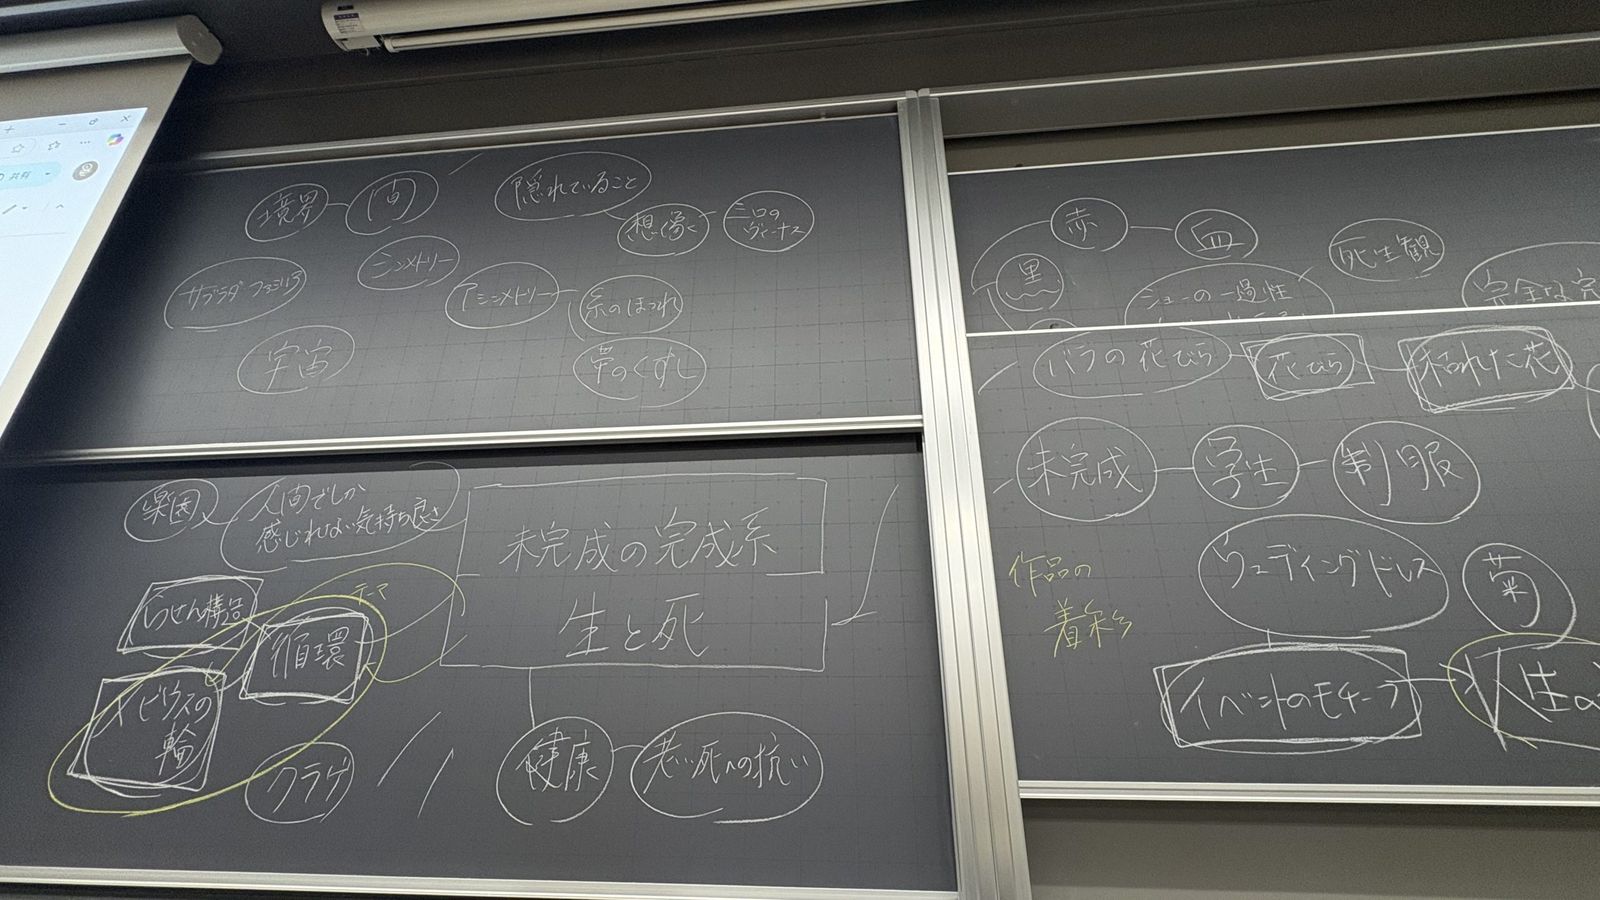 共有
境界
間
隠れていること
想像
ミロの
ヴィーナス
シンメトリー
サグラダ・ファミリア
アシンメトリー
糸のほつれ
宇宙
帯のくずし
楽園
人間でしか
感じれない気持ち良さ
未完成の完成系
生と死
テーマ
らせん構造
循環
メビウスの
輪
クラゲ
健康
老い、死への抗い
赤
血
死生観
黒
ショーの一過性
完全な完
バラの花びら
花びら
枯れた花
未完成
学生
制服
作品の
着彩
ウェディングドレス
菊
イベントのモチーフ
人生の